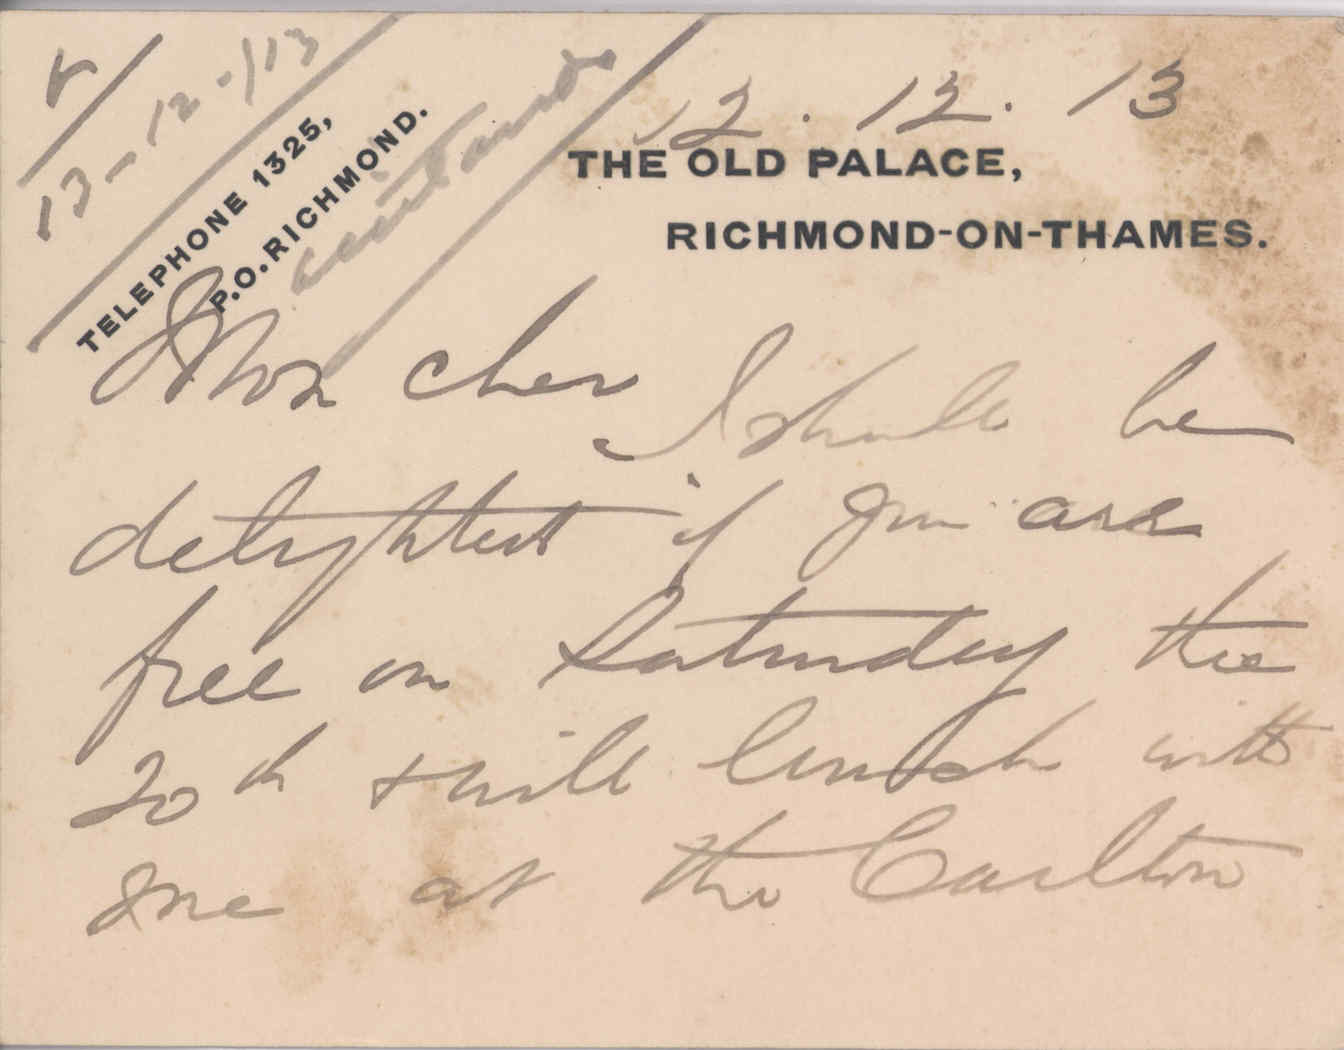 r
13-12-113
TELEPHONE 1325,
P.O. RICHMOND.
12.12.13
THE OLD PALACE,
RICHMOND-ON-THAMES.
Mon cher
I shall be
delighted if you are
free on Saturday the
20th + will lunch with
me at the Carlton